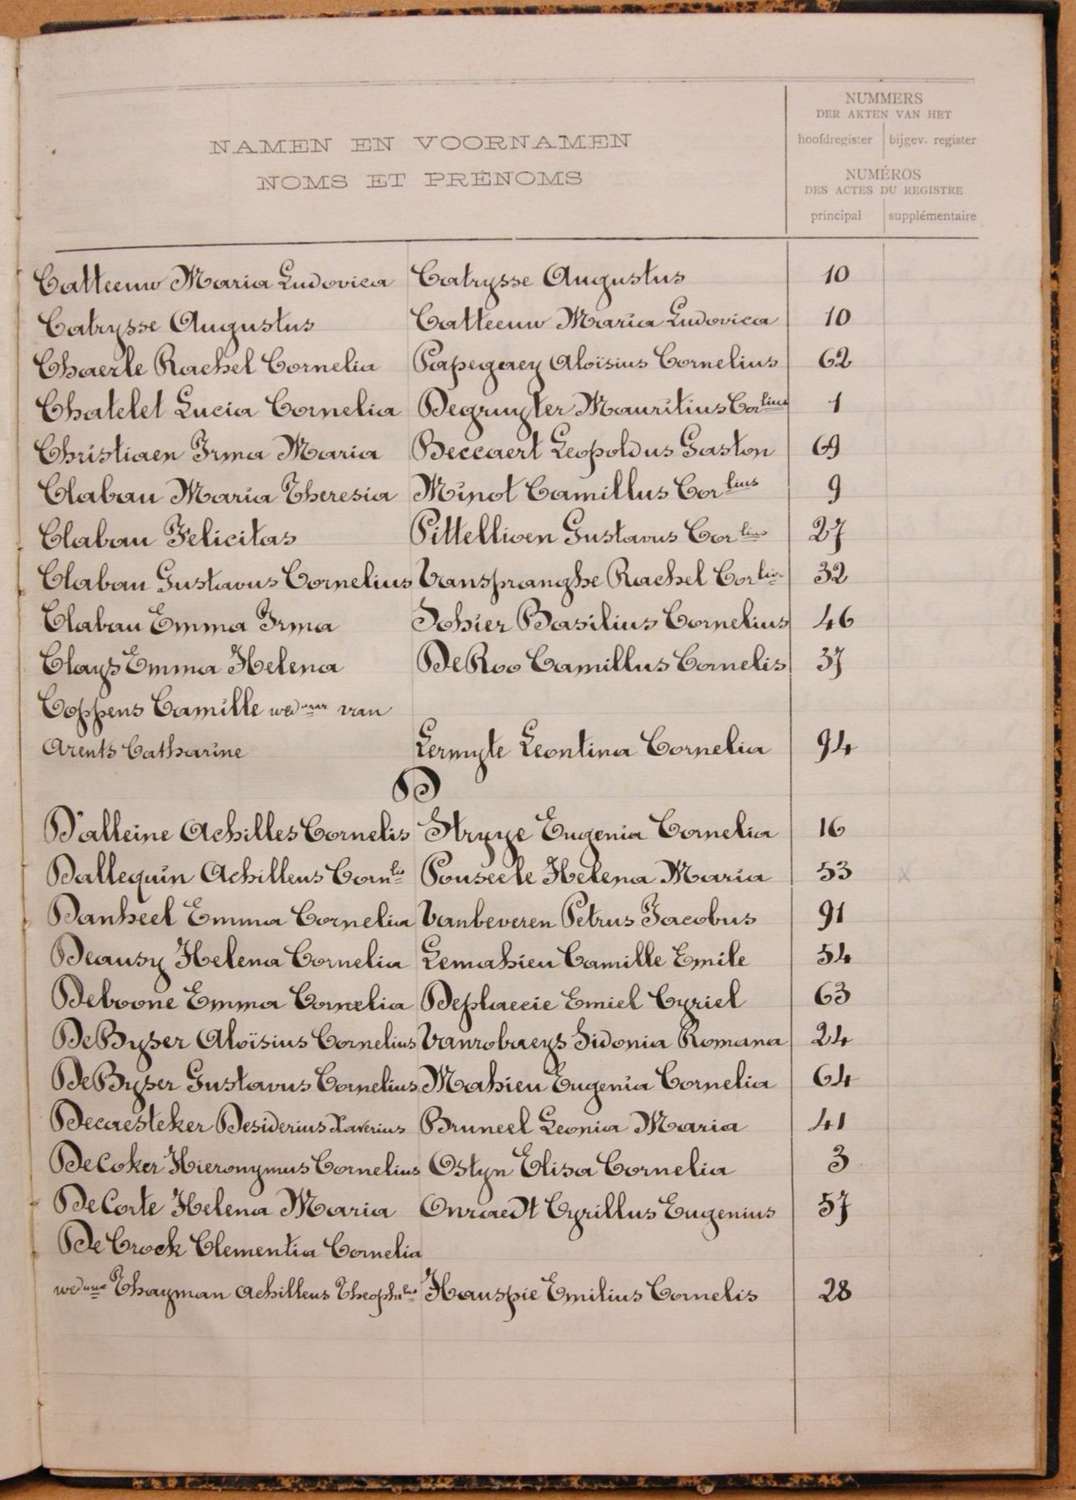 NAMEN EN VOORNAMEN
NOMS ET PRÉNOMS
NUMMERS
DER AKTEN VAN HET
hoofdregister bijgev. register
NUMÉROS
DES ACTES DU REGISTRE
principal supplémentaire
Catteeuw Maria Ludovica Catrysse Augustus 10
Catrysse Augustus Catteeuw Maria Ludovica 10
Chaerle Rachel Cornelia Papegaey Aloïsius Cornelius 62
Chatelet Lucia Cornelia Degruyter Mauritius Corlius 1
Christiaen Irma Maria Beccaert Leopoldus Gaston 69
Clabau Maria Theresia Minot Camillus Corlius 9
Clabau Felicitas Pittellioen Gustavus Corlius 27
Clabau Gustavus Cornelius Vanspranghe Rachel Corlia 32
Clabau Emma Irma Sohier Basilius Cornelius 46
Clays Emma Helena DeRoo Camillus Cornelis 37
Coppens Camille weduwnaar van
Arents Catharine Lermyte Leontina Cornelia 94
D
D'alleine Achilles Cornelis Stryye Eugenia Cornelia 16
Dallequin Achilleus Cornlis Pouseele Helena Maria 53
x
Danheel Emma Cornelia Vanbeveren Petrus Jacobus 91
Deausy Helena Cornelia Lemahieu Camille Emile 54
Deboone Emma Cornelia Deplaecie Emiel Cyriel 63
DeByser Aloïsius Cornelius Vanrobaeys Sidonia Romana 24
DeByser Gustavus Cornelius Mahieu Eugenia Cornelia 64
Decaesteker Desiderius Xaverius Bruneel Leonia Maria 41
DeCoker Hieronymus Cornelius Ostyn Elisa Cornelia 3
DeCorte Helena Maria Onraedt Cyrillus Eugenius 57
DeCrock Clementia Cornelia
Thayman Achilleus Hauspie Emilius Cornelis 28